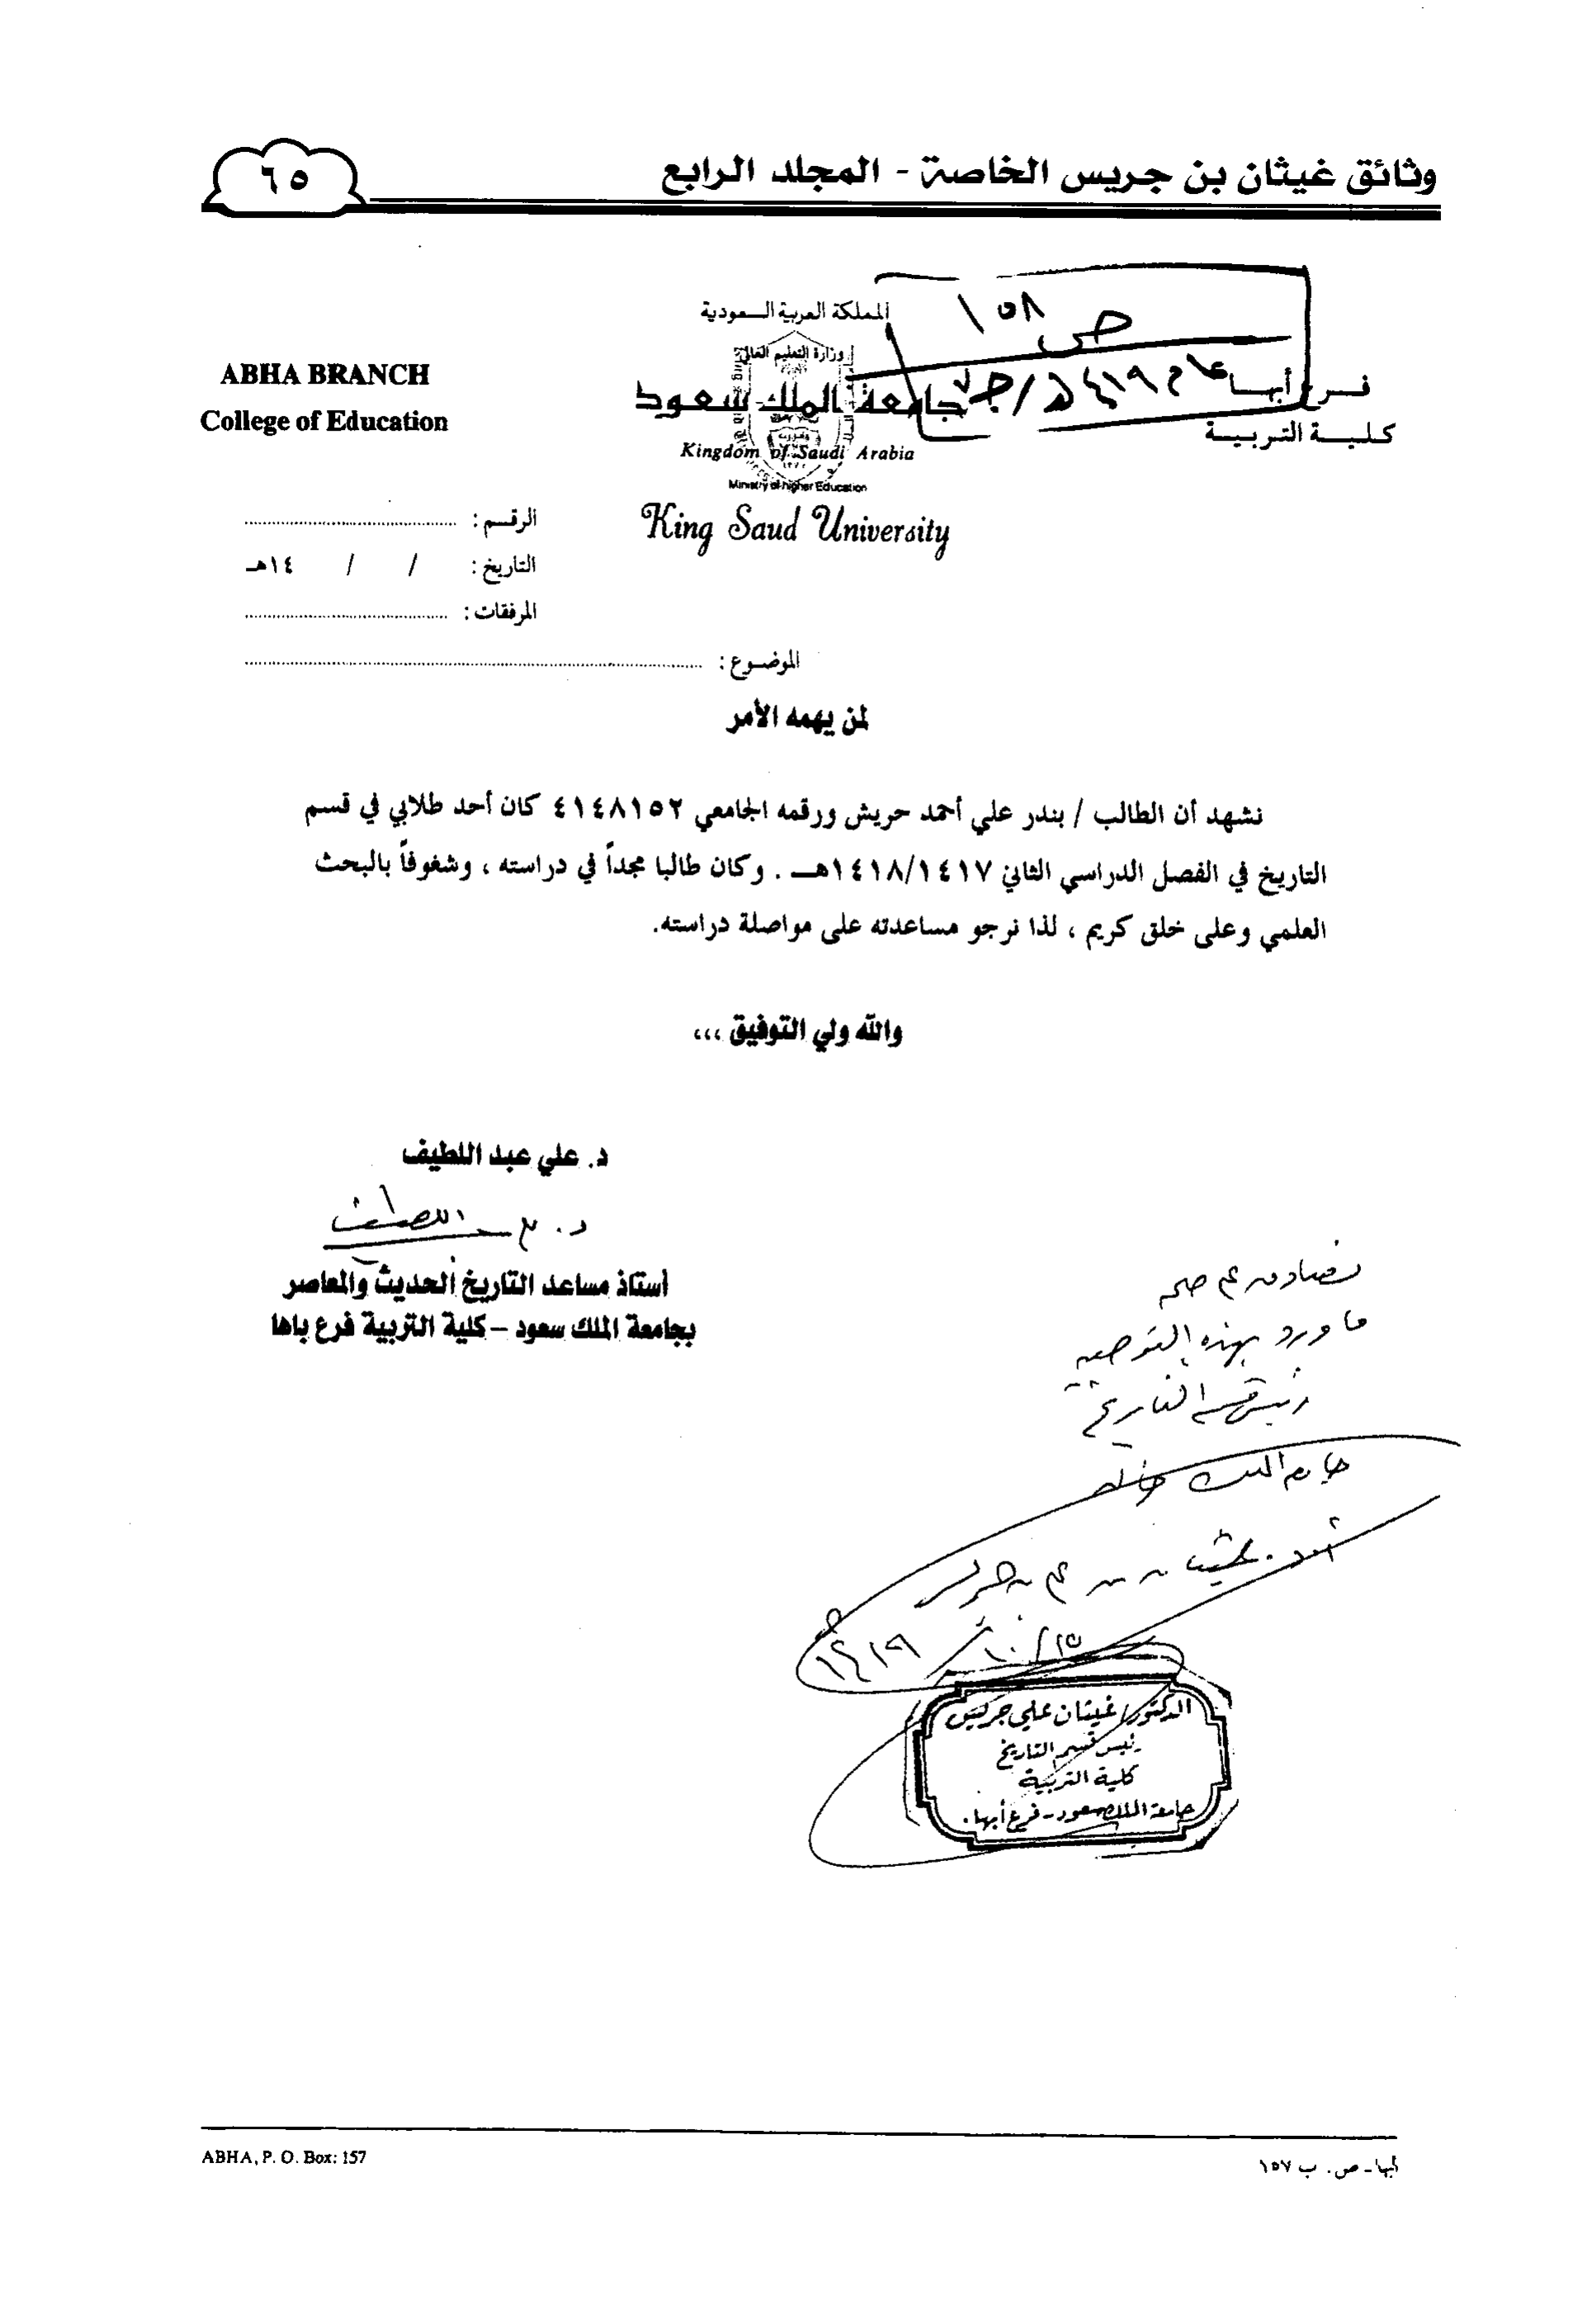 وثائق غيثان بن جريس الخاصة - المجلد الرابع
٦٥
ص ١٥٨
المملكة العربية السعودية
وزارة التعليم العالي
جامعة الملك سعود
Kingdom of Saudi Arabia
Ministry of higher Education
King Saud University
فرع أبها
كلية التربية
ABHA BRANCH
College of Education
الرقم :
التاريخ : / / ١٤هـ
المرفقات :
الموضوع :
لمن يهمه الأمر
نشهد أن الطالب / بندر علي أحمد حريش ورقمه الجامعي ٤١٤٨١٥٢ كان أحد طلابي في قسم
التاريخ في الفصل الدراسي الثاني ١٤١٨/١٤١٧هـ . وكان طالبا مجداً في دراسته ، وشغوفاً بالبحث
العلمي وعلى خلق كريم ، لذا نرجو مساعدته على مواصلة دراسته.
والله ولي التوفيق ،،،
د. علي عبد اللطيف
أستاذ مساعد التاريخ الحديث والمعاصر
بجامعة الملك سعود – كلية التربية فرع باها
نصادق على صحة
ما ورد بهذه التوصية
رئيس قسم التاريخ
جامعة الملك خالد
أ.د. غيثان بن علي بن جريس
١٤١٩/١٠/٢٥هـ
الدكتور/ غيثان علي جريس
رئيس قسم التاريخ
كلية التربية
جامعة الملك سعود - فرع أبها.
ABHA, P. O. Box: 157
أبها - ص. ب ١٥٧